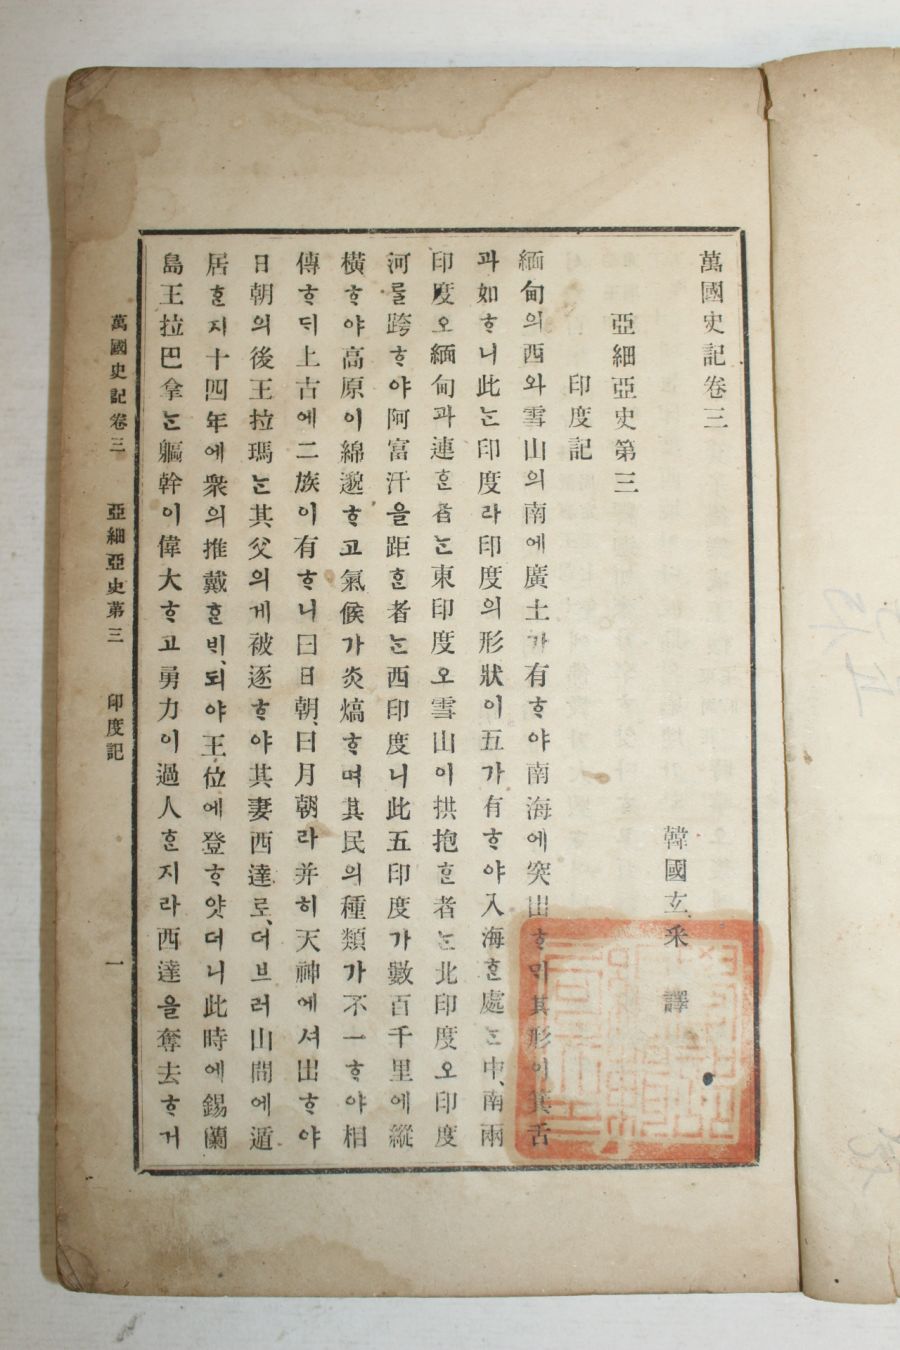 萬國史記卷三
韓國玄、采 譯
亞細亞史第三
印度記
緬甸의西와雪山의南에廣土가有ᄒᆞ야南海에突出ᄒᆞ며其形이箕舌
과如ᄒᆞ니此ᄂᆞᆫ印度라印度의形狀이五가有ᄒᆞ야入海ᄒᆞᆫ處ᄂᆞᆫ中、南兩
印度오緬甸과連ᄒᆞᆫ者ᄂᆞᆫ東印度오雪山이拱抱ᄒᆞᆫ者ᄂᆞᆫ北印度오印度
河ᄅᆞᆯ跨ᄒᆞ야阿富汗을距ᄒᆞᆫ者ᄂᆞᆫ西印度니此五印度가數百千里에縱
橫ᄒᆞ야高原이綿邈ᄒᆞ고氣候가炎熇ᄒᆞ며其民의種類가不一ᄒᆞ야相
傳ᄒᆞ되上古에二族이有ᄒᆞ니曰日朝、曰月朝라并히天神에셔出ᄒᆞ야
日朝의後王拉瑪ᄂᆞᆫ其父의게被逐ᄒᆞ야其妻西達로、더브러山間에遁
居ᄒᆞᆫ지十四年에衆의推戴ᄒᆞᆫᄇᆡ、되야王位에登ᄒᆞ얏더니此時에錫蘭
島王拉巴拿ᄂᆞᆫ軀幹이偉大ᄒᆞ고勇力이過人ᄒᆞᆫ지라西達을奪去ᄒᆞ거
萬國史記卷三 亞細亞史第三 印度記 一